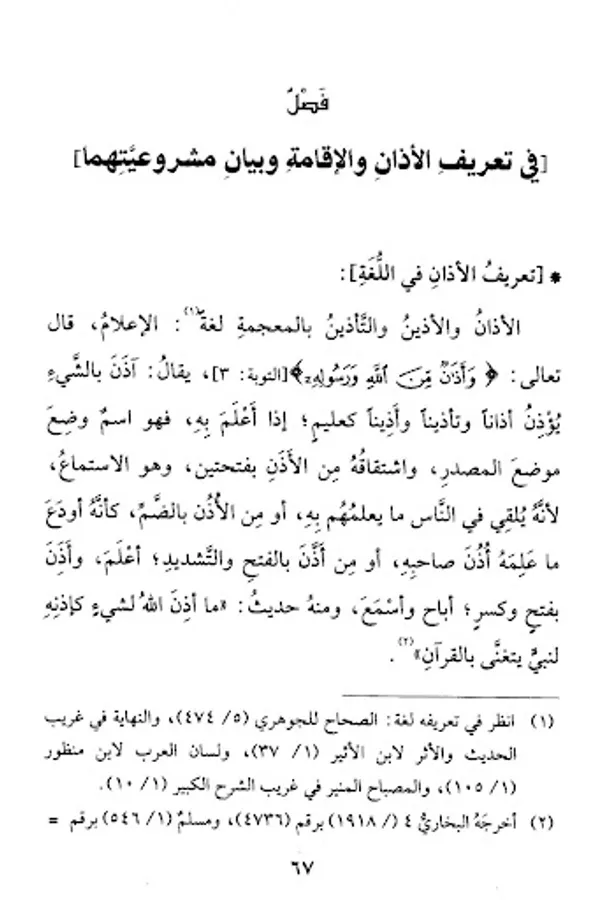 فَصْلٌ
[في تعريفِ الأذانِ والإقامةِ وبيانِ مشروعيَّتِهما]
* [تعريفُ الأذانِ في اللُّغَةِ]:
الأذانُ والأذينُ والتَّأذينُ بالمعجمةِ لغةً(١): الإعلامُ، قال
تعالى: ﴿وَأَذَٰنٌ مِّنَ ٱللَّهِ وَرَسُولِهِۦٓ﴾[التوبة: ٣]، يقالُ: آذَنَ بالشَّيءِ
يُؤْذِنُ أذاناً وتأذيناً وأَذِيناً كعليمٍ؛ إذا أَعْلَمَ بِهِ، فهو اسمٌ وضِعَ
موضعَ المصدرِ، واشتقاقُهُ مِن الأَذَنِ بفتحتين، وهو الاستماعُ،
لأنَّهُ يُلقِي في النَّاس ما يعلمُهُم بِهِ، أو مِن الأُذُن بالضَّمِّ، كأنَّهُ أودَعَ
ما عَلِمَهُ أُذُنَ صاحبِهِ، أو مِن أَذَّنَ بالفتحِ والتَّشديدِ؛ أعْلَمَ، وأَذِنَ
بفتحٍ وكسرٍ؛ أباح وأسْمَعَ، ومنهُ حديثُ: «ما أذِنَ اللهُ لشيءٍ كإذنِهِ
لنبيٍّ يتغنَّى بالقرآنِ»(٢).
(١) انظر في تعريفه لغة: الصحاح للجوهري (٥/ ٤٧٤)، والنهاية في غريب
الحديث والأثر لابن الأثير (١/ ٣٧)، ولسان العرب لابن منظور
(١/ ١٠٥)، والمصباح المنير في غريب الشرح الكبير (١/ ١٠).
(٢) أخرجَهُ البخاريُّ ٤ (/ ١٩١٨) برقم (٤٧٣٦)، ومسلمٌ (١/ ٥٤٦) برقم =
٦٧